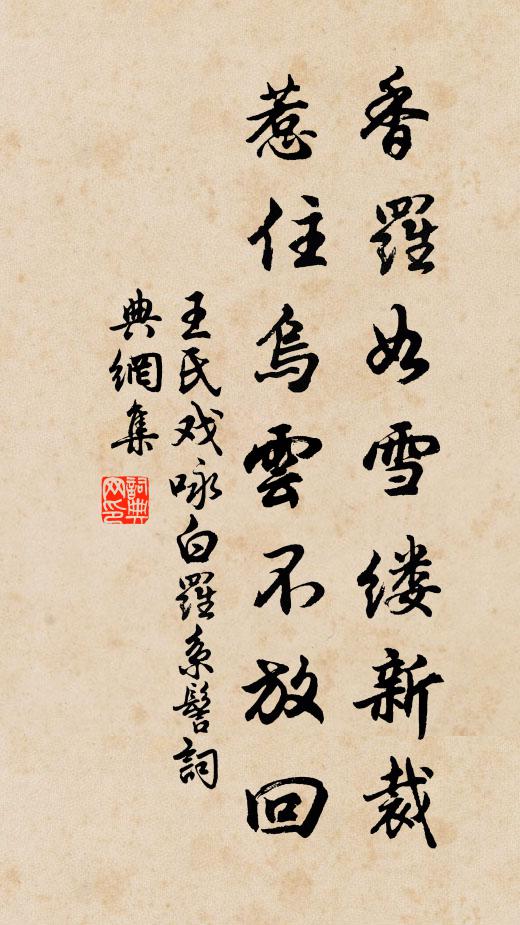 香羅如雪縷新裁
惹住烏雲不放回
王氏戏咏白羅系髻詞
典網集
詞典網印